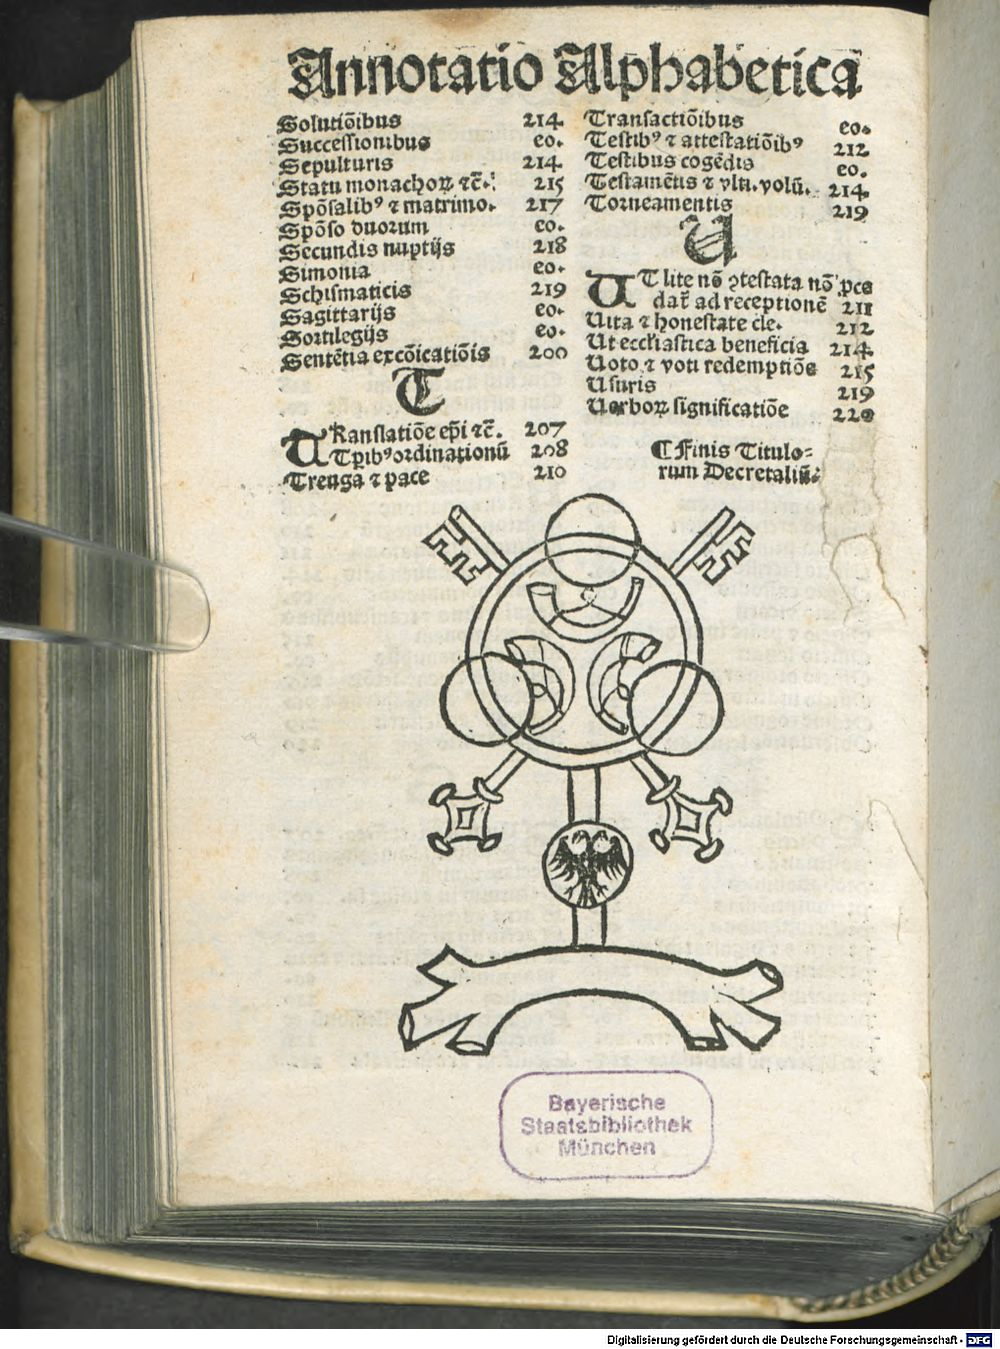 Annotatio Alphabetica
Solutiõibus 214.
Successionibus eo.
Sepulturis 214.
Statu monachoꝝ ⁊c̄. 215
Spõsalibꝰ ⁊ matrimo. 217
Spõso duorum eo.
Secundis nuptijs 218
Simonia eo.
Schismaticis 219
Sagittarijs eo.
Sortilegijs eo.
Sentẽtia excõicatiõis 200
T
TRanslatiõe ep̃i ⁊c̄. 207
Tp̃ibꝰ ordinationũ 208
Treuga ⁊ pace 210
Transactiõibus eo.
Testibꝰ ⁊ attestatiõibꝰ 212
Testibus cogẽdis eo.
Testamẽtis ⁊ vlti. volũ. 214.
Torneamentis 219
U
UT lite nõ ꝯtestata nõ ꝓce
dat̃ ad receptionẽ 211
Uita ⁊ honestate cle. 212
Ut eccl̃iastica beneficia 214.
Uoto ⁊ voti redemptiõe 215
Usuris 219
Uerboꝝ significatiõe 220
¶ Finis Titulo⸗
rum Decretaliũ.
Bayerische
Staatsbibliothek
München
Digitalisierung gefördert durch die Deutsche Forschungsgemeinschaft - DFG